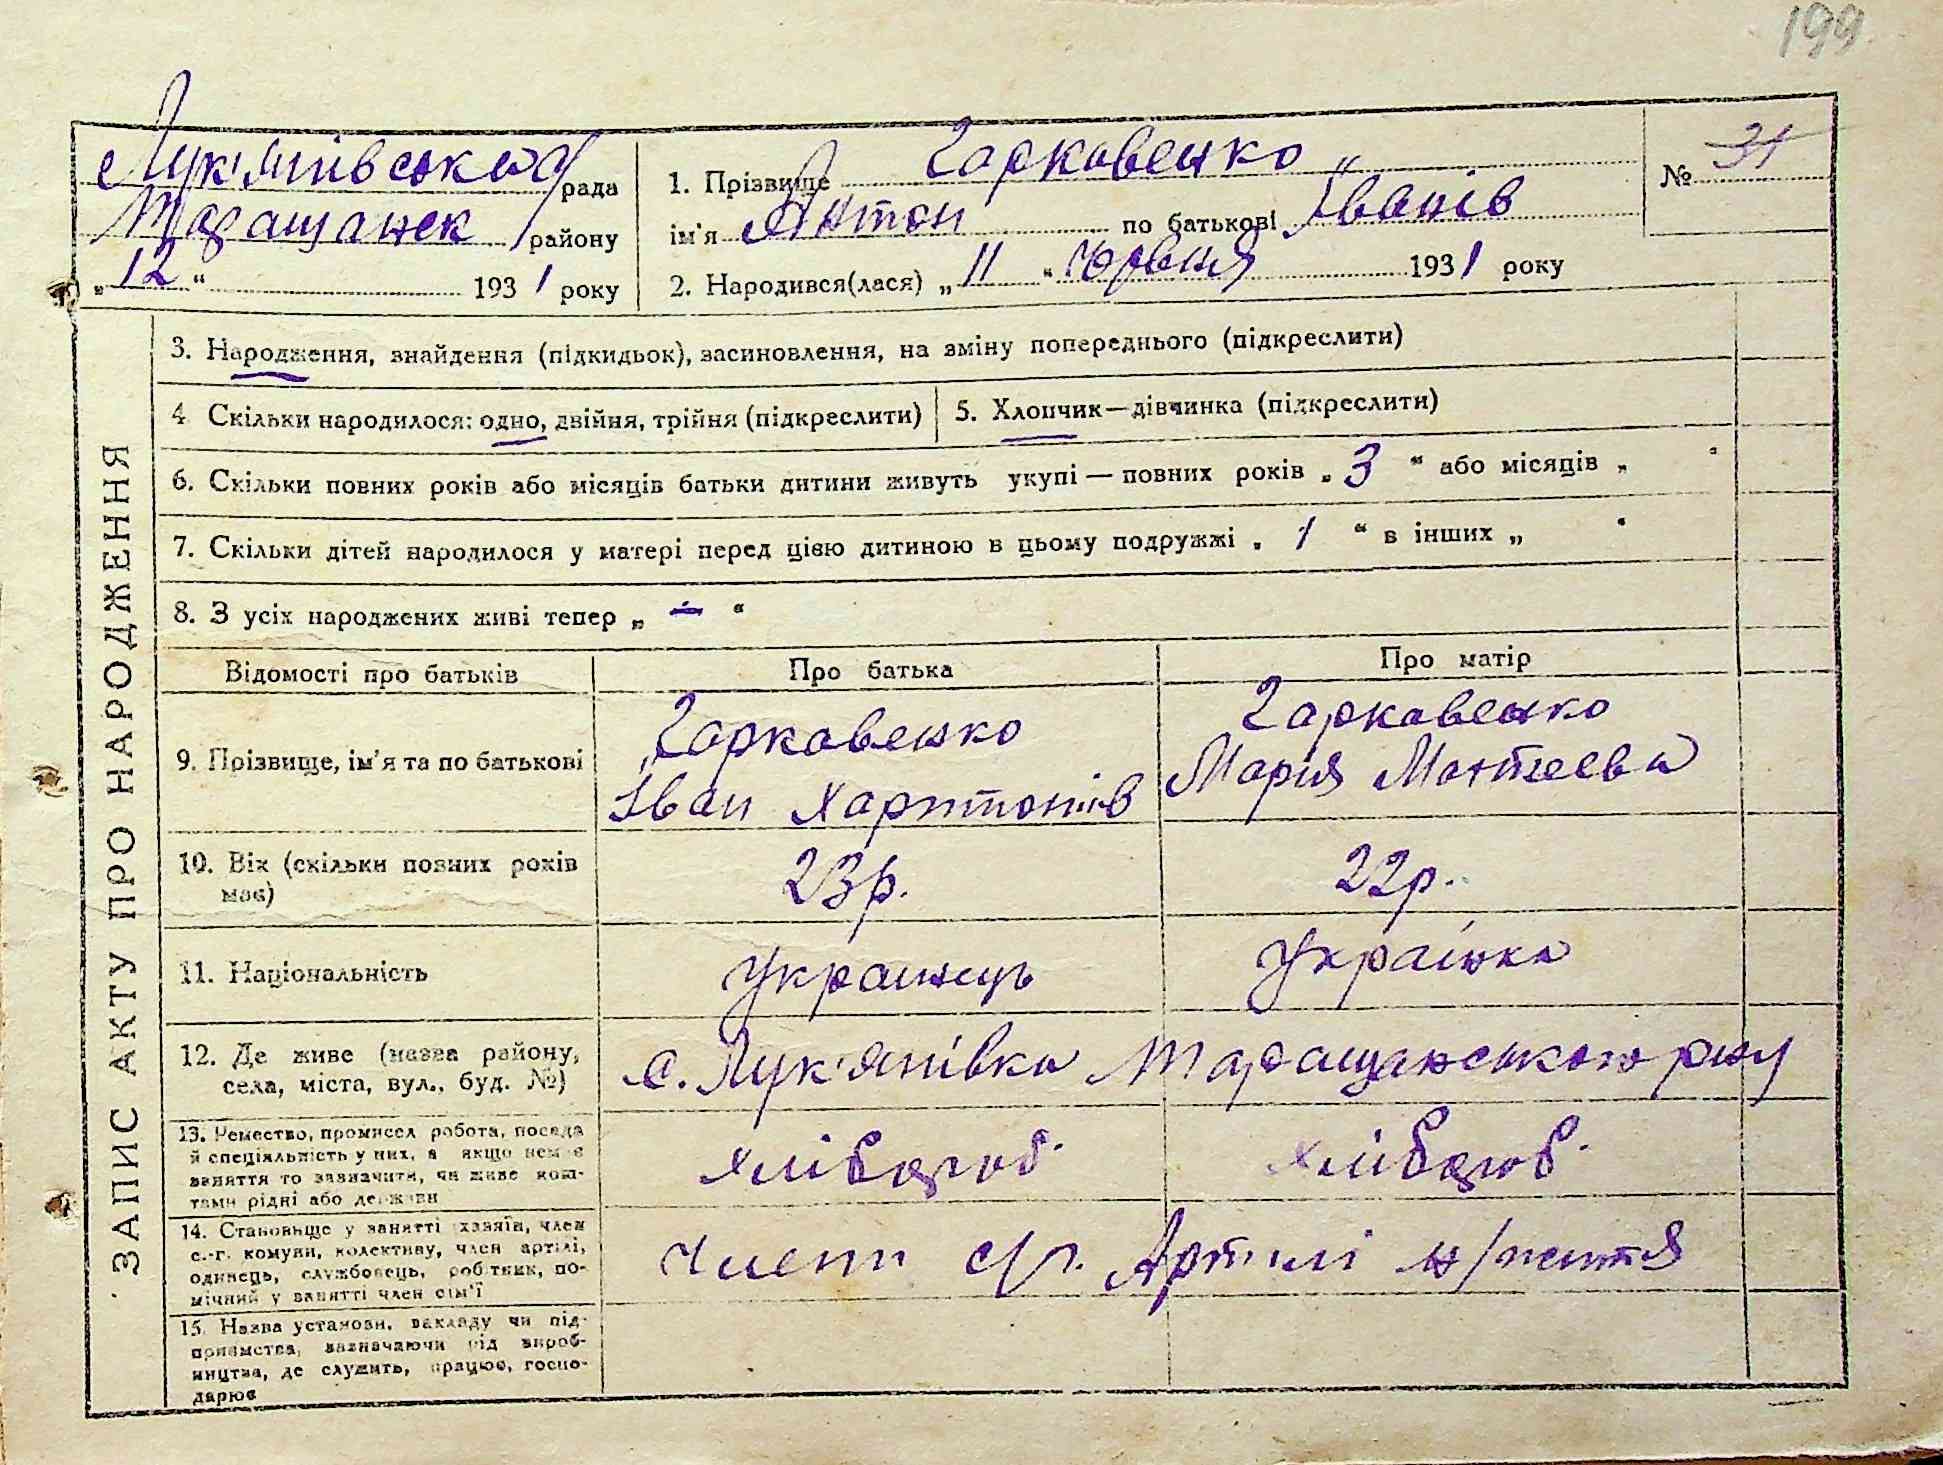 199
Лук'янівської рада
Таращанськ району
„12“ 1931 року
1. Прізвище Гарковенко
ім'я Антон по батькові Іванів
2. Народився(лася) „11“ червня 1931 року
№ 31
ЗАПИС АКТУ ПРО НАРОДЖЕННЯ
3. Народження, знайдення (підкидьок), засиновлення, на зміну попереднього (підкреслити)
4 Скільки народилося: одно, двійня, трійня (підкреслити)
5. Хлопчик—дівчинка (підкреслити)
6. Скільки повних років або місяців батьки дитини живуть укупі — повних років „3“ або місяців „ “
7. Скільки дітей народилося у матері перед цією дитиною в цьому подружжі „1“ в інших „ “
8. З усіх народжених живі тепер „ – “
Відомості про батьків
Про батька
Про матір
9. Прізвище, ім'я та по батькові
Гарковенко
Іван Харитонів
Гарковенко
Мария Матвеева
10. Вік (скільки повних років
має)
23р.
22р.
11. Національність
Украинець
Українка
12. Де живе (назва району,
села, міста, вул., буд. №)
с. Лук'янівка Таращанського р-ну
13. Ремество, промисел робота, посада
й спеціяльність у них, а якщо нема
заняття то зазначити, чи живе кош-
тами рідні або держави
хлібороб.
хлібороб.
14. Становище у занятті хазяїн, член
с.-г. комуни, колективу, член артілі,
одинець, службовець, робітник, по-
мічний у занятті член сім'ї
члени с/г. Артілі н/життя
15. Назва установи, закладу чи під-
приємства, зазначаючи рід вироб-
ництва, де служить, працює, госпо-
дарює